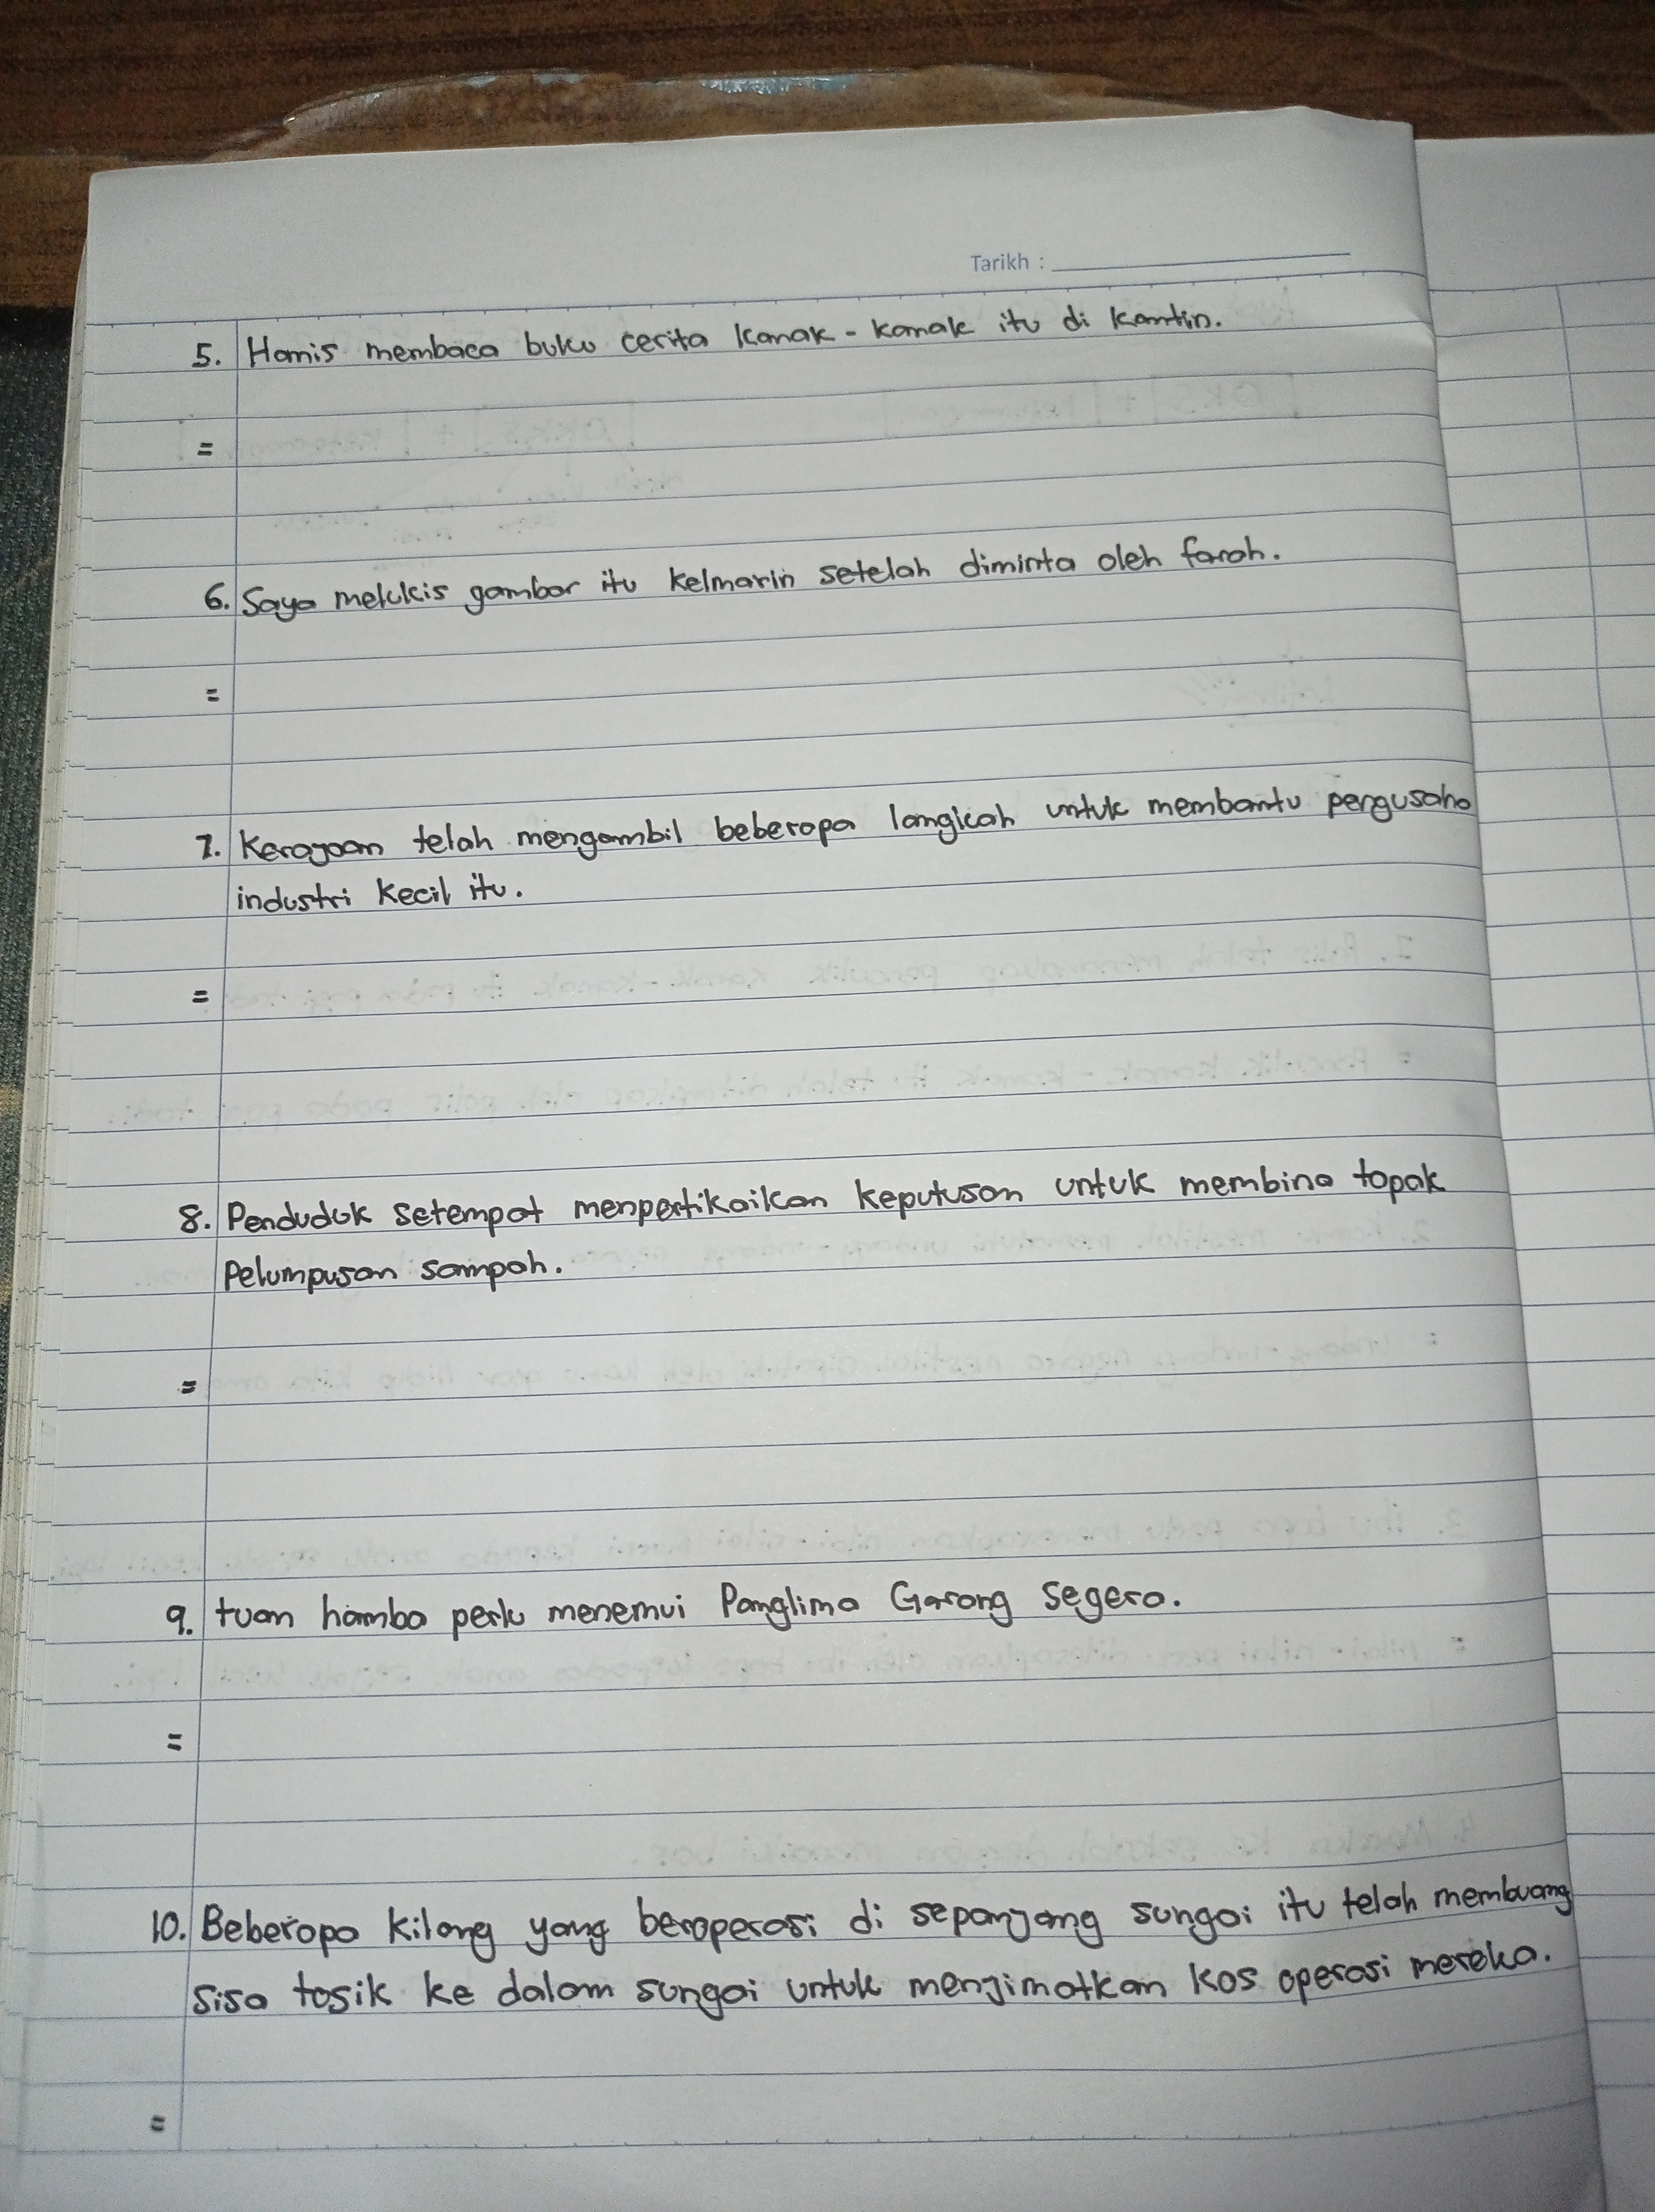 Tarikh :
5. Hamis membaca buku cerita kanak - kanak itu di kantin.
=
6. Saya melukis gambar itu kelmarin setelah diminta oleh farah.
=
7. Kerajaan telah mengambil beberapa langkah untuk membantu pengusaha
industri kecil itu.
=
8. Penduduk setempat menpertikaikan keputusan untuk membina tapak
Pelumpusan sampah.
=
9. tuan hamba perlu menemui Panglima Garang segera.
=
10. Beberapa kilang yang beroperasi di sepanjang sungai itu telah membuang
sisa tosik ke dalam sungai untuk menjimatkan kos operasi mereka.
=